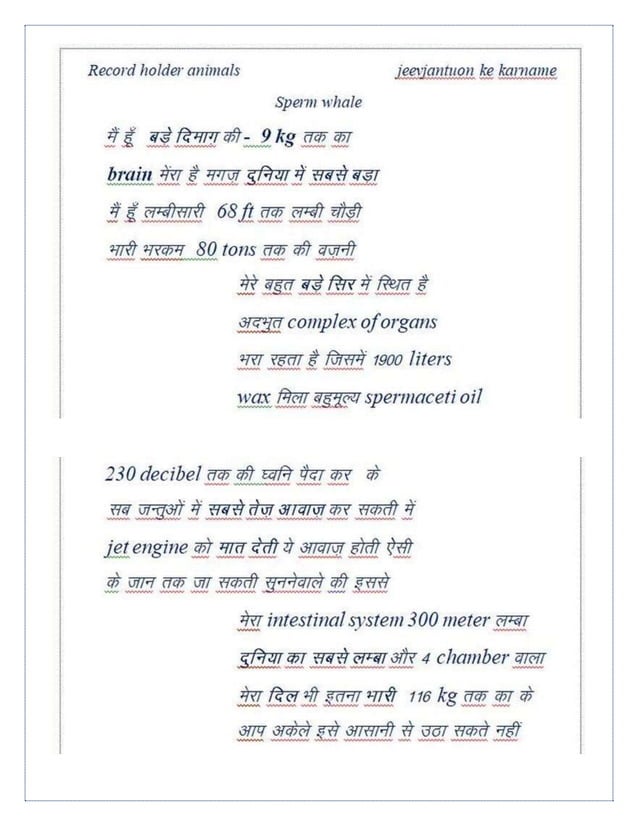 Record holder animals jeevjantuon ke karname
Sperm whale
मैं हूँ बड़े दिमाग़ की - 9 kg तक का
brain मेंरा है मगज़ दुनिया में सबसे बड़ा
मैं हूँ लम्बीसारी 68 ft तक लम्बी चौड़ी
भारी भरकम 80 tons तक की वज़नी
मेरे बहुत बड़े सिर में स्थित है
अदभुत complex of organs
भरा रहता है जिसमें 1900 liters
wax मिला बहुमूल्य spermaceti oil
230 decibel तक की घ्वनि पैदा कर के
सब जन्तुओं में सबसे तेज़ आवाज़ कर सकती में
jet engine को मात देती ये आवाज़ होती ऐसी
के जान तक जा सकती सुननेवाले की इससे
मेरा intestinal system 300 meter लम्बा
दुनिया का सबसे लम्बा और 4 chamber वाला
मेरा दिल भी इतना भारी 116 kg तक का के
आप अकेले इसे आसानी से उठा सकते नहीं